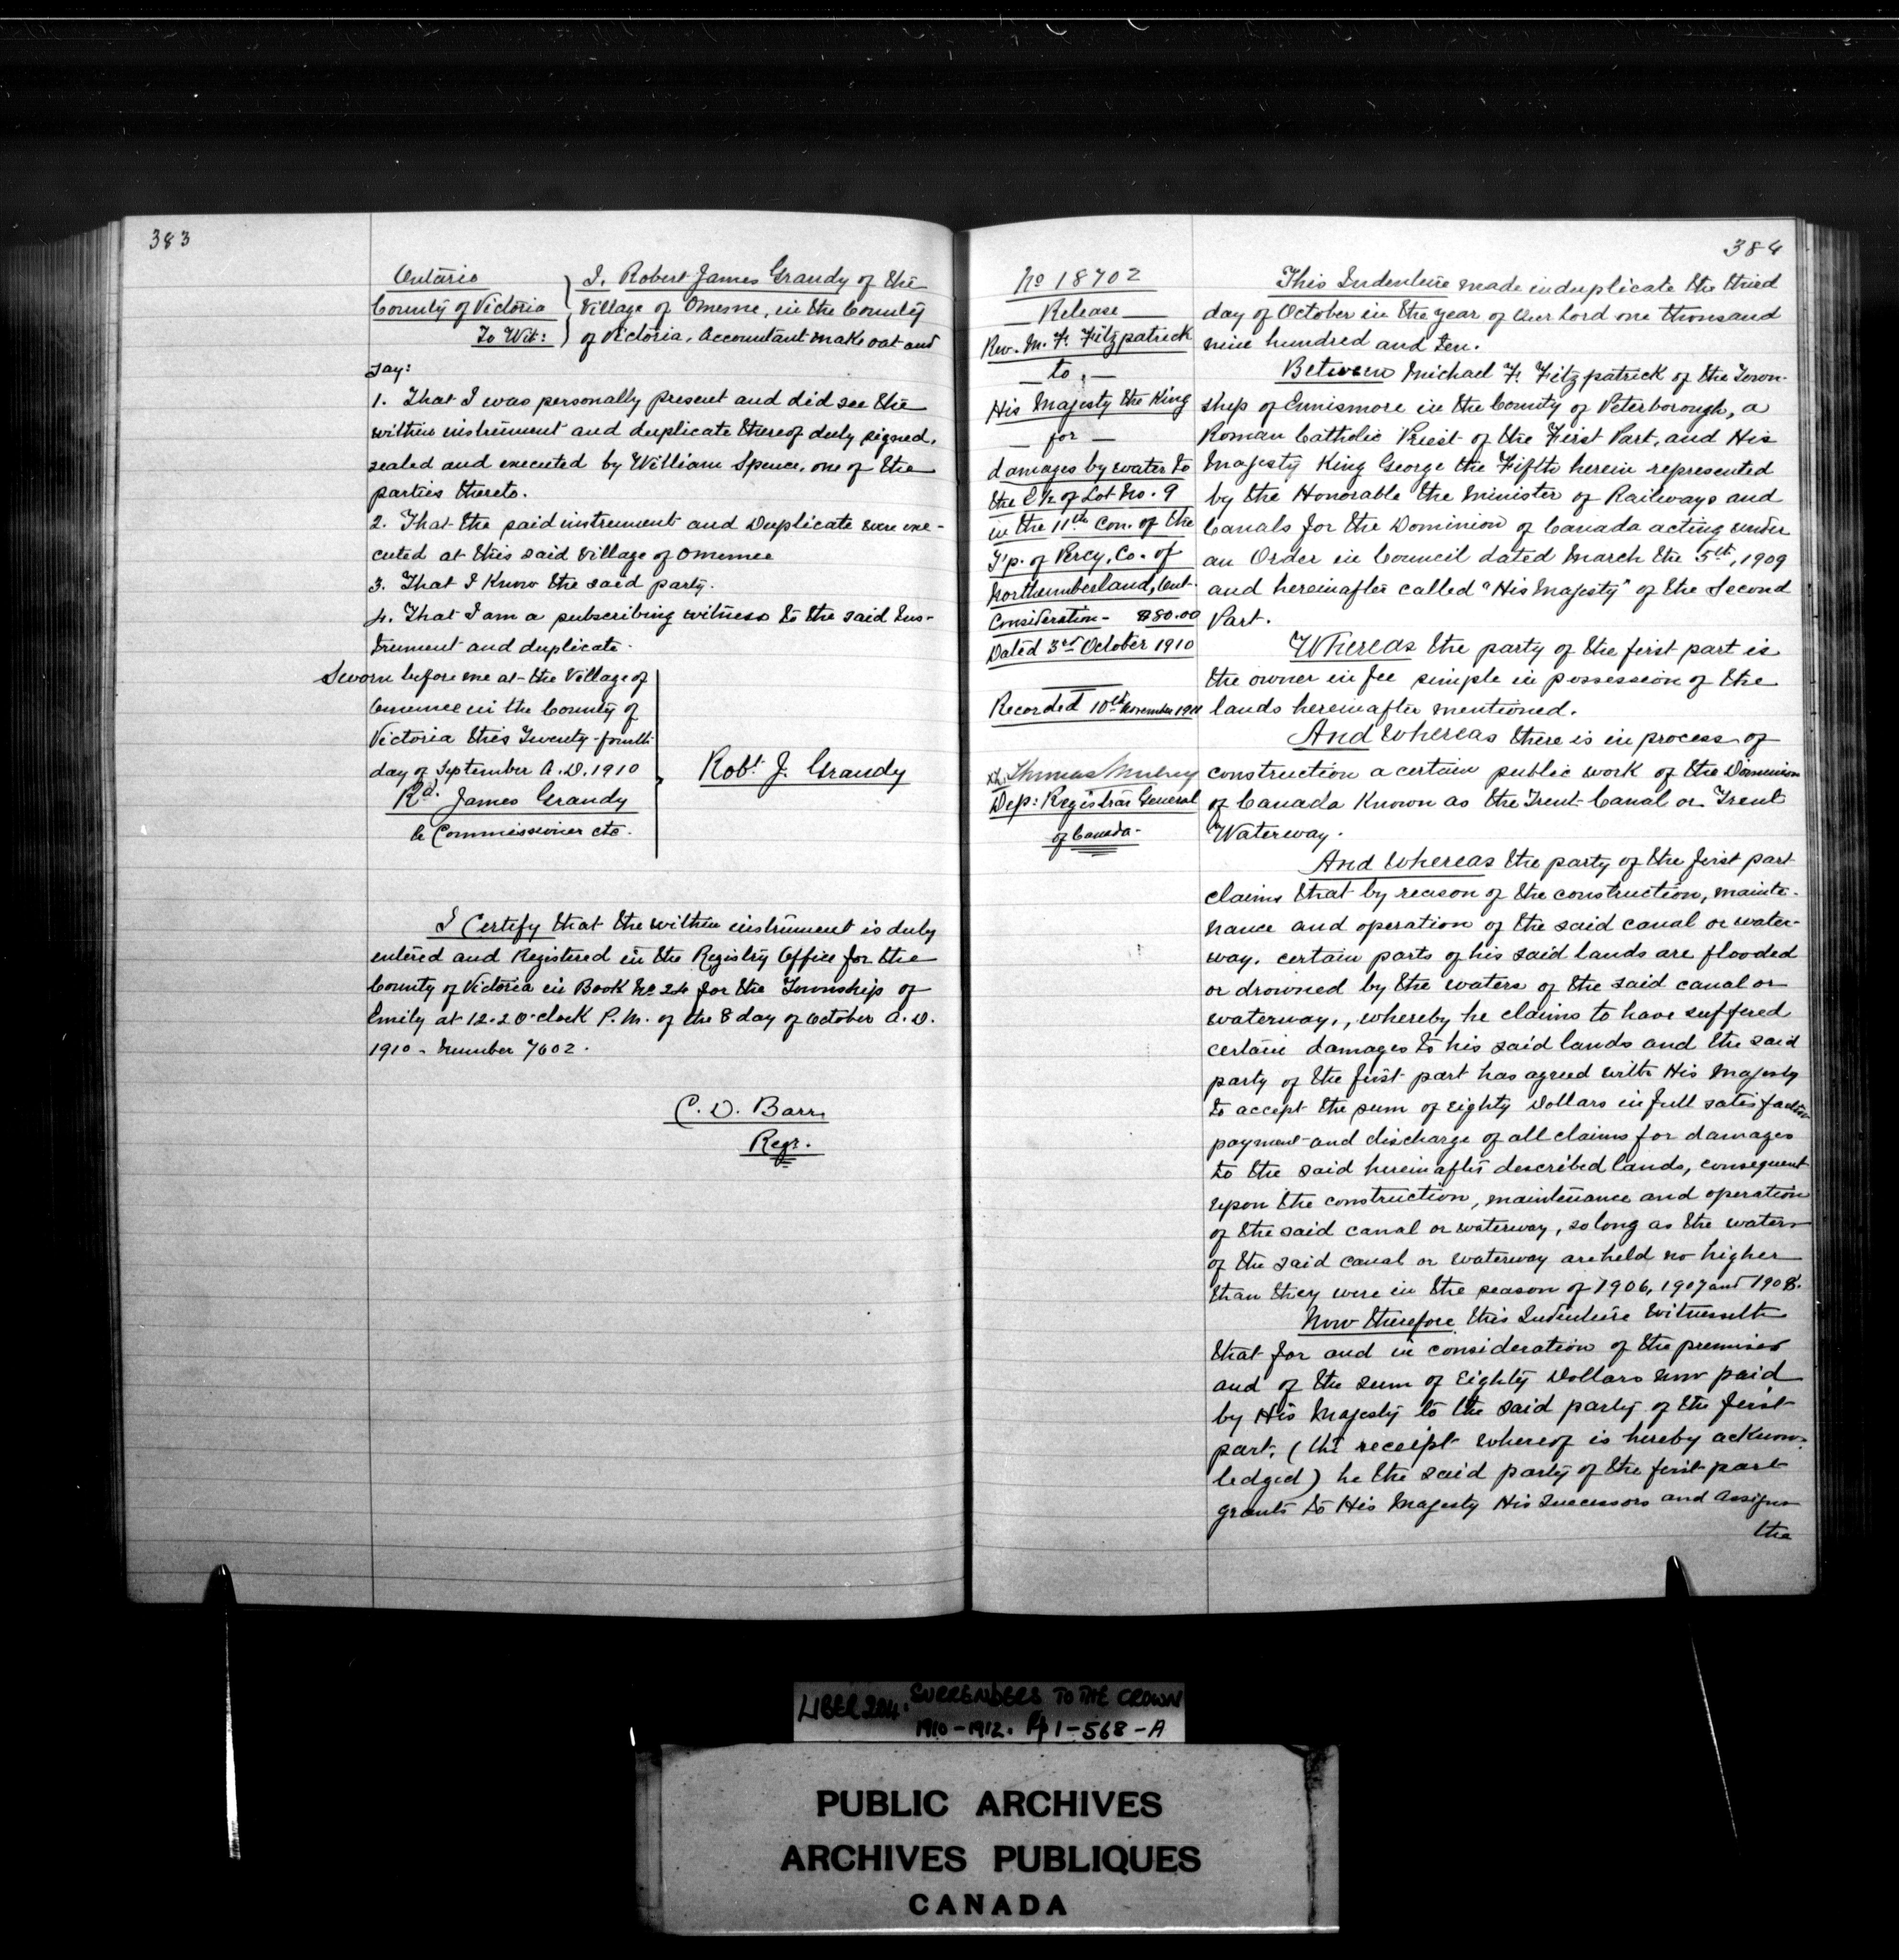 383
Ontario
County of Victoria
To Wit:
I, Robert James Grandy of the
Village of Omemee, in the County
of Victoria, Accountant make oat and
say:
1. That I was personally present and did see the
within instrument and duplicate thereof duly signed,
sealed and executed by William Spence, one of the
parties thereto.
2. That the said instrument and Duplicate were exe-
cuted at this said Village of Omemee
3. That I Know the said party.
4. That I am a subscribing witness to the said Ins-
trument and duplicate.
Sworn before me at the Village of
Omemee in the County of
Victoria this Twenty-fourth
day of September A.D. 1910
Rd. James Grandy
A Commissioner etc.
Robt J. Grandy
I Certify that the within instrument is duly
entered and Registered in the Registry Office for the
County of Victoria in Book No 24 for the Township of
Emily at 12.20 o'clock P.M. of the 8 day of October A.D.
1910 - Number 7602.
C. D. Barr
Regr.
384
No 18702
Release
Rev. M. F. Fitzpatrick
to
His Majesty the King
for
damages by water to
the E½ of Lot No. 9
in the 11th Con. of the
T'p. of Percy, Co. of
Northumberland, Ont.
Consideration - $80.00
Dated 3rd October 1910
Recorded 10th November 1910
Thomas Mulvey
Dep: Registrar General
of Canada.
This Indenture made in duplicate the third
day of October in the year of Our Lord one thousand
nine hundred and ten.
Between Michael F. Fitzpatrick of the Town-
ship of Ennismore in the County of Peterborough, a
Roman Catholic Priest of the First Part, and His
Majesty King George the Fifth herein represented
by the Honorable the Minister of Railways and
Canals for the Dominion of Canada acting under
an Order in Council dated March the 5th, 1909
and hereinafter called "His Majesty" of the Second
Part.
Whereas the party of the first part is
the owner in fee simple in possession of the
lands hereinafter mentioned.
And Whereas there is in process of
construction a certain public work of the Dominion
of Canada Known as the Trent Canal or Trent
Waterway.
And Whereas the party of the first part
claims that by reason of the construction, mainte-
nance and operation of the said canal or water-
way, certain parts of his said lands are flooded
or drowned by the waters of the said canal or
waterway,, whereby he claims to have suffered
certain damages to his said lands and the said
party of the first part has agreed with His Majesty
to accept the sum of Eighty Dollars in full satisfaction
payment and discharge of all claims for damages
to the said hereinafter described lands, consequent
upon the construction, maintenance and operation
of the said canal or waterway, so long as the waters
of the said canal or waterway are held no higher
than they were in the season of 1906, 1907 and 1908.
Now therefore this Indenture Witnesseth
that for and in consideration of the premises
and of the sum of Eighty Dollars now paid
by His Majesty to the said party of the first
part, (the receipt whereof is hereby acknow-
ledged) he the said party of the first part
grants to His Majesty His Successors and Assigns
the
LIBER 204. SURRENDERS TO THE CROWN
1910-1912. Pp 1-568-A
PUBLIC ARCHIVES
ARCHIVES PUBLIQUES
CANADA